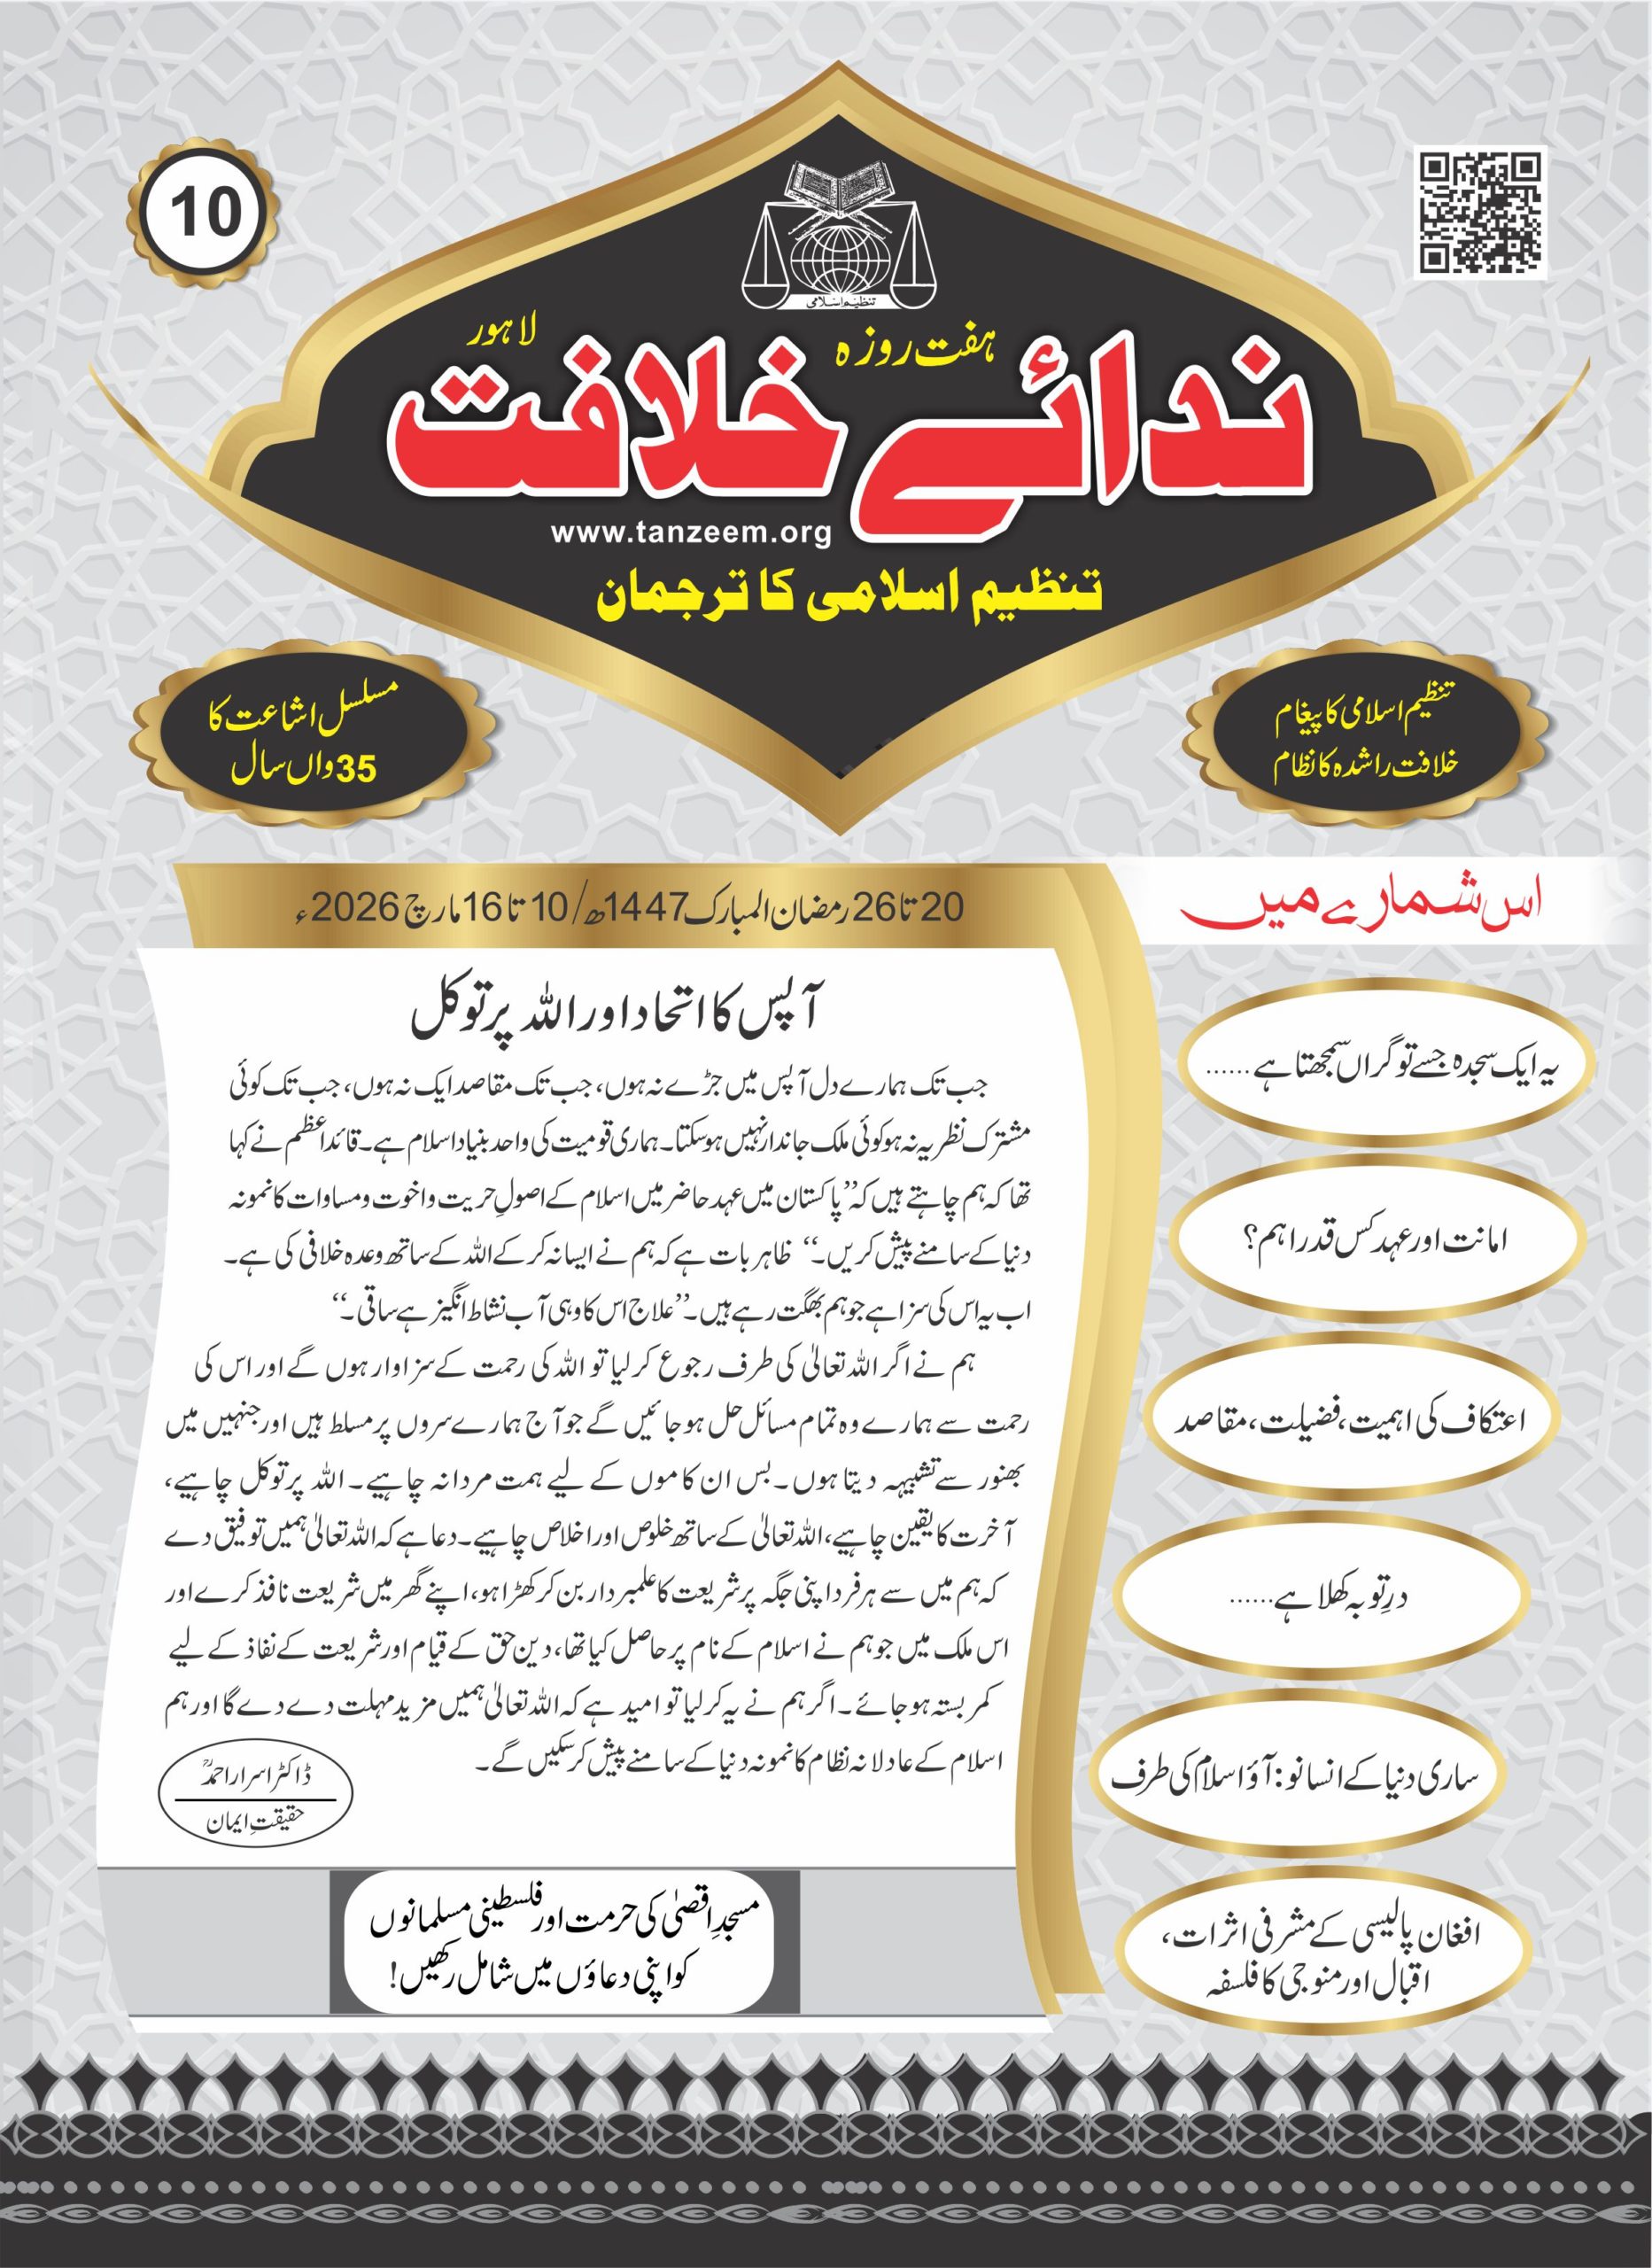 10
تنظیم اسلامی
ہفت روزہ
لاہور
ندائے خلافت
www.tanzeem.org
تنظیم اسلامی کا ترجمان
تنظیم اسلامی کا پیغام
خلافت راشدہ کا نظام
مسلسل اشاعت کا
35واں سال
20 تا 26 رمضان المبارک 1447ھ/10 تا 16 مارچ 2026ء
آپس کا اتحاد اور اللہ پر توکل
جب تک ہمارے دل آپس میں جڑے نہ ہوں، جب تک مقاصد ایک نہ ہوں، جب تک کوئی
مشترک نظریہ نہ ہو کوئی ملک جاندار نہیں ہو سکتا۔ ہماری قومیت کی واحد بنیاد اسلام ہے۔ قائداعظم نے کہا
تھا کہ ہم چاہتے ہیں کہ ”پاکستان میں عہد حاضر میں اسلام کے اصولِ حریت و اخوت و مساوات کا نمونہ
دنیا کے سامنے پیش کریں۔“ ظاہر بات ہے کہ ہم نے ایسا نہ کر کے اللہ کے ساتھ وعدہ خلافی کی ہے۔
اب یہ اس کی سزا ہے جو ہم بھگت رہے ہیں۔ ”علاج اس کا وہی آب نشاط انگیز ہے ساقی۔“
ہم نے اگر اللہ تعالیٰ کی طرف رجوع کر لیا تو اللہ کی رحمت کے سزاوار ہوں گے اور اس کی
رحمت سے ہمارے وہ تمام مسائل حل ہو جائیں گے جو آج ہمارے سروں پر مسلط ہیں اور جنہیں میں
بھنور سے تشبیہہ دیتا ہوں۔ بس ان کاموں کے لیے ہمت مردانہ چاہیے۔ اللہ پر توکل چاہیے،
آخرت کا یقین چاہیے، اللہ تعالیٰ کے ساتھ خلوص اور اخلاص چاہیے۔ دعا ہے کہ اللہ تعالیٰ ہمیں توفیق دے
کہ ہم میں سے ہر فرد اپنی جگہ پر شریعت کا علمبردار بن کر کھڑا ہو، اپنے گھر میں شریعت نافذ کرے اور
اس ملک میں جو ہم نے اسلام کے نام پر حاصل کیا تھا، دین حق کے قیام اور شریعت کے نفاذ کے لیے
کمر بستہ ہو جائے۔ اگر ہم نے یہ کر لیا تو امید ہے کہ اللہ تعالیٰ ہمیں مزید مہلت دے دے گا اور ہم
اسلام کے عادلانہ نظام کا نمونہ دنیا کے سامنے پیش کر سکیں گے۔
ڈاکٹر اسرار احمدؒ
حقیقتِ ایمان
مسجدِ اقصیٰ کی حرمت اور فلسطینی مسلمانوں
کو اپنی دعاؤں میں شامل رکھیں!
اس شمارے میں
یہ ایک سجدہ جسے تو گراں سمجھتا ہے ......
امانت اور عہد کس قدر اہم؟
اعتکاف کی اہمیت، فضیلت، مقاصد
درِ توبہ کھلا ہے ......
ساری دنیا کے انسانو: آؤ اسلام کی طرف
افغان پالیسی کے مشرفی اثرات،
اقبال اور منوجی کا فلسفہ